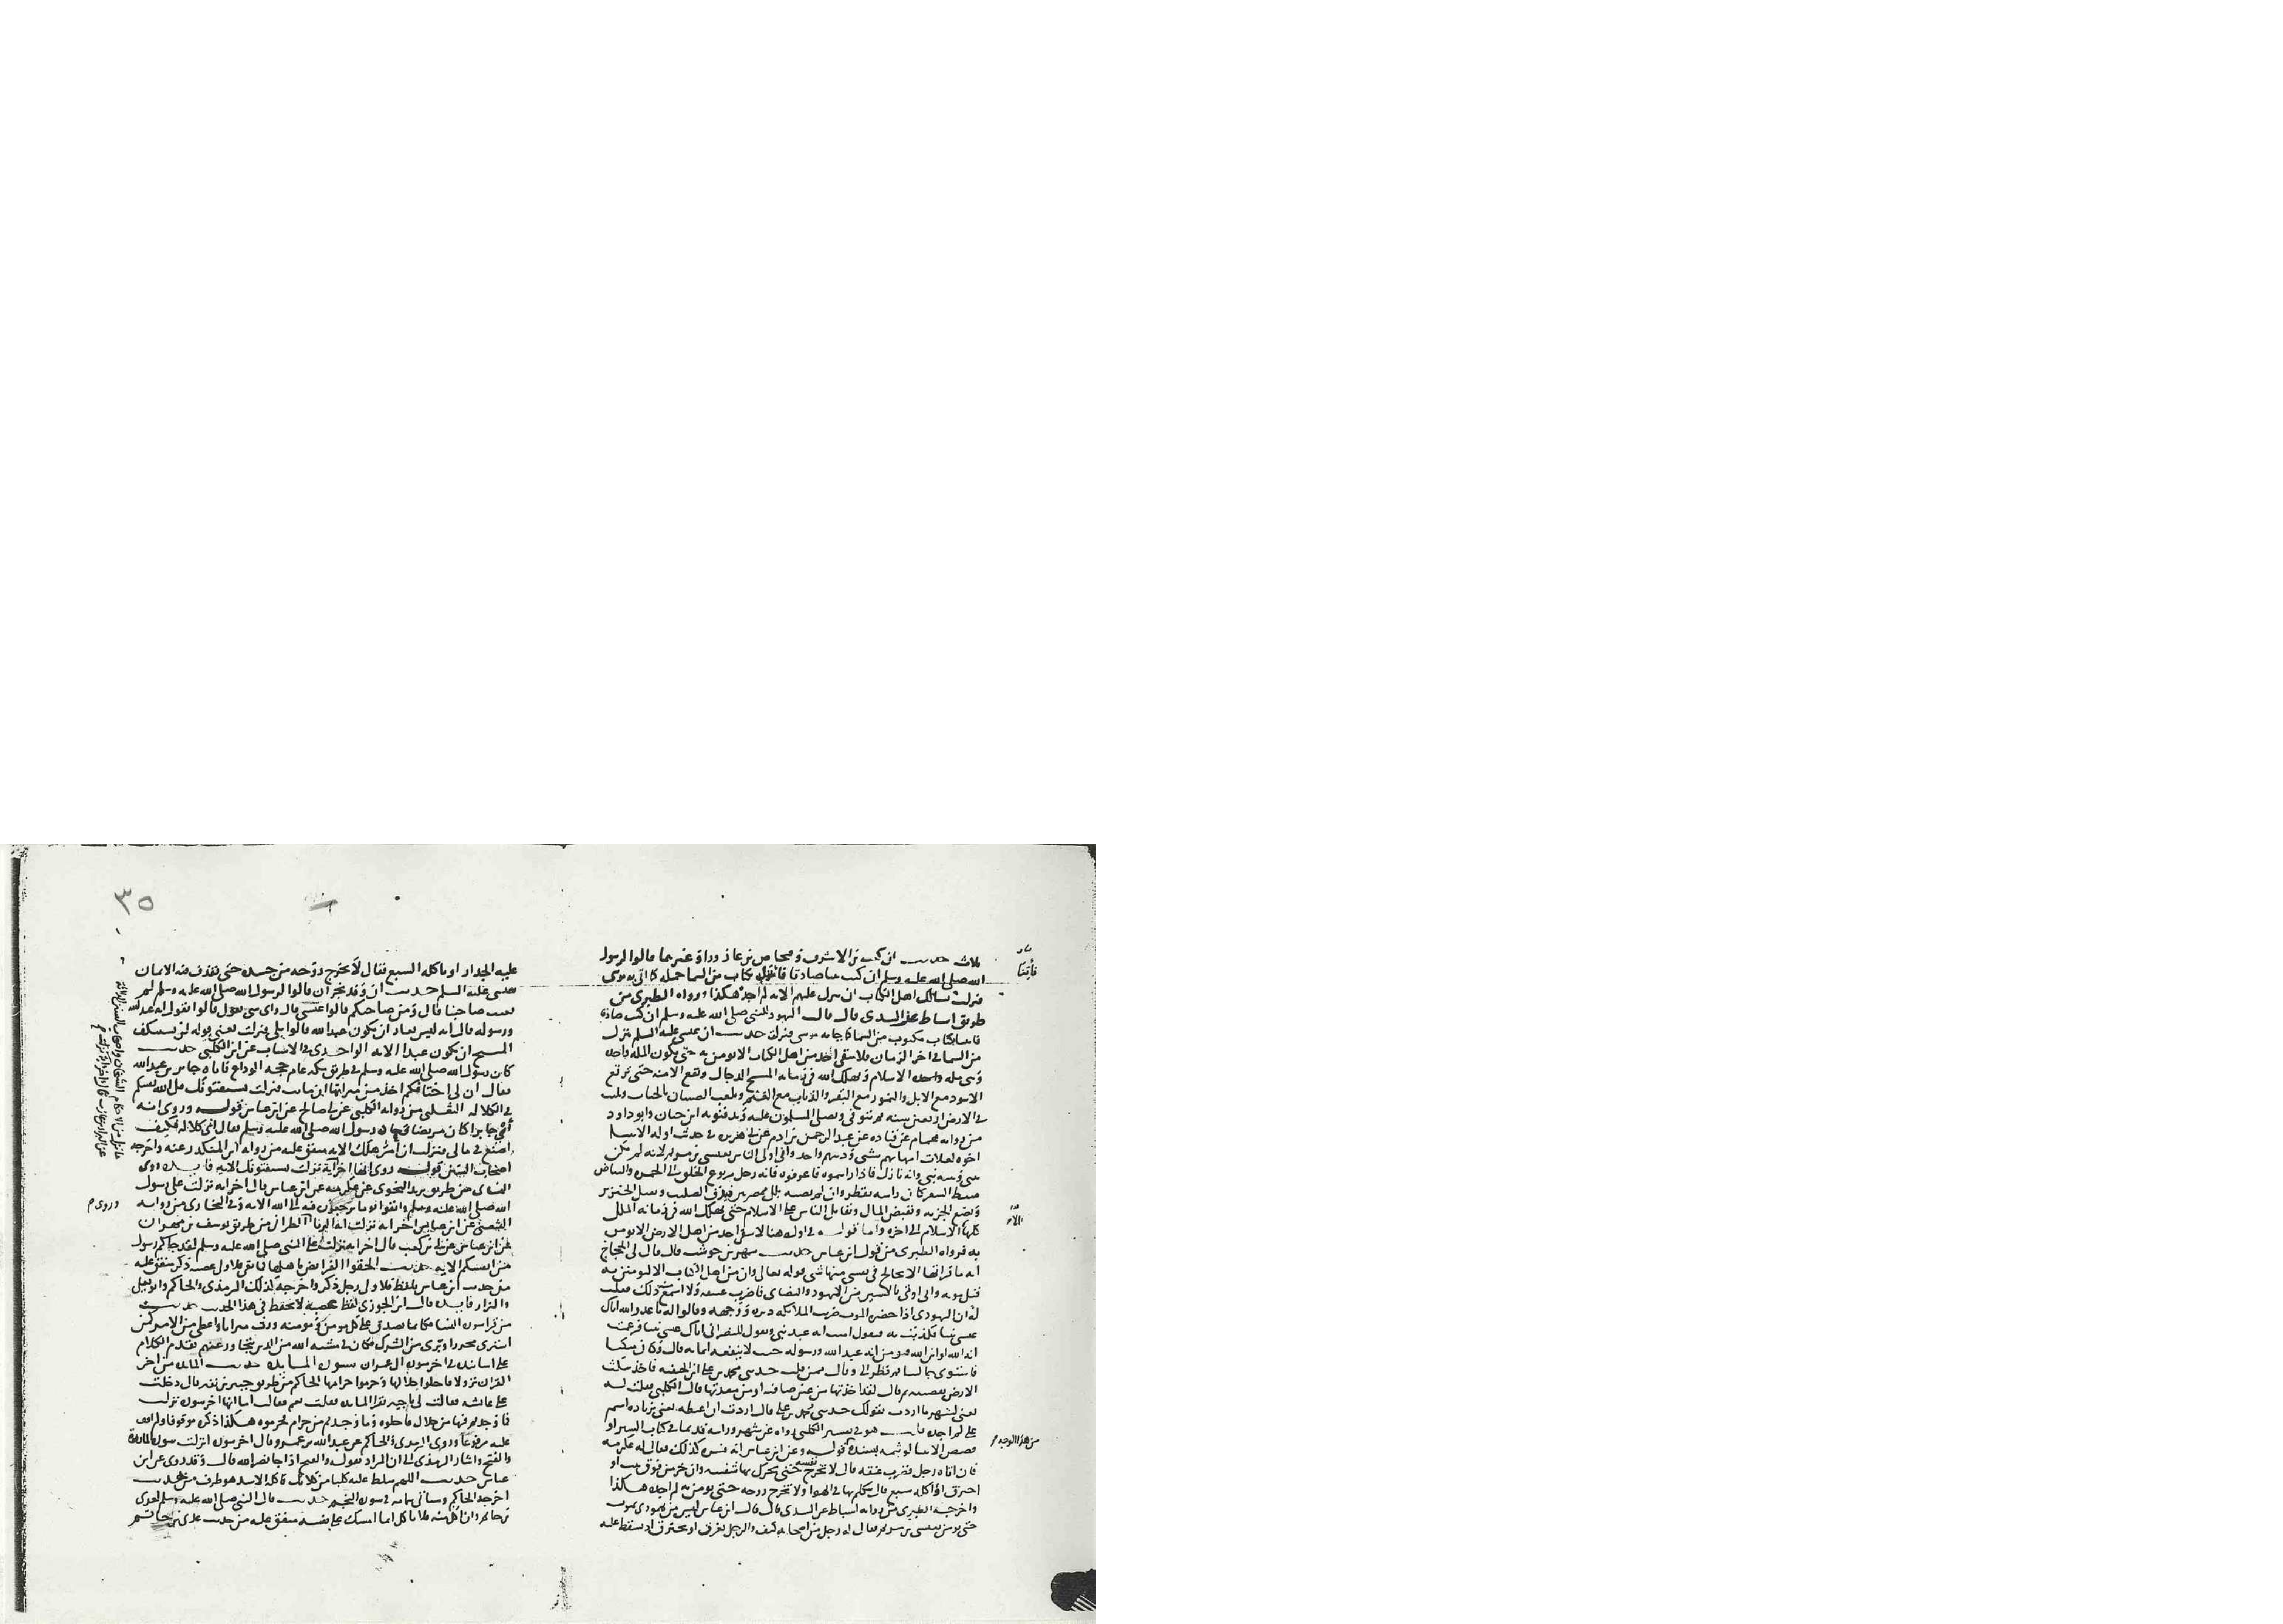 ثلاث حديث ان كعب بن الاشرف وفنحاص بن عازوراء وغيرهما قالوا لرسول
الله صلى الله عليه وسلم ان كنت نبيا صادقا فاتنا بكتاب من السما جملة كما اتى به موسى
فنزلت يسالك اهل الكتاب ان تنزل عليهم الايه لم اجده هكذا ورواه الطبري من
طريق اسباط عن السدي قال قالت اليهود للنبي صلى الله عليه وسلم ان كنت صادقا
فاتنا بكتاب مكتوب من السما كما جا به موسى فنزلت حديث ان عيسى عليه السلم ينزل
من السما في اخر الزمان فلا يبقى احد من اهل الكتاب الا يومن به حتى يكون المله واحده
وهي مله الاسلام ويهلك الله في زمانه المسيح الدجال وتقع الامنه حتى ترتع
الاسود مع الابل والنمور مع البقر والذياب مع الغنم ويلعب الصبيان بالحيات ويلبث
في الارض اربعين سنه ثم يتوفى ويصلى المسلمون عليه ويدفنونه ابن حبان وابو داود
من روايه همام عن قتاده عن عبد الرحمن بن ادم عن ابي هريره في حديث اوله الانبيا
اخوه لعلات امهاتهم شتى ودينهم واحد واني اولى الناس بعيسى بن مريم لانه لم يكن
بيني وبينه نبي وانه نازل فاذا رايتموه فاعرفوه فانه رجل مربوع الخلق الى الحمره والبياض
سبط الشعر كان راسه يقطر وان لم يصبه بلل بين ممصرتين فيدق الصليب ويقتل الخنزير
ويضع الجزيه ويفيض المال ويقاتل الناس على الاسلام حتى يهلك الله في زمانه الملل
كلها الا الاسلام الى اخره واما قوله في اوله هنا لا يبقى احد من اهل الارض الا يومن
به فرواه الطبري من قول ابن عباس حديث شهر بن حوشب قال قال لي الحجاج
ايه ما قراتها الا تخالج في نفسي منها شي قوله تعالى وان من اهل الكتاب الا ليومنن به
قبل موته واني اوتى بالاسير من اليهود والنصارى فاضرب عنقه ولا اسمع ذلك فقلت
له ان اليهودي اذا حضره الموت ضربت الملائكه دبره ووجهه وقالوا له يا عدو الله اتاك
عيسى نبيا فكذبت به فيقول امنت انه عبد نبي ويقول للنصراني اتاك عيسى نبيا فزعمت
انه الله او ابن الله فيومن انه عبد الله ورسوله حيث لا ينفعه ايمانه قال وكان متكيا
فاستوى جالسا ثم نظر الي وقال ممن قلت حدثني محمد بن علي ابن الحنفيه فاخذ ينكت
الارض بقضيبه ثم قال لقد اخذتها من عين صافيه او من معدنها قال الكلبي فقلت له
يعني لشهر ما اردت بقولك حدثني محمد بن علي قال اردت ان اغيظه يعني بزياده اسم
علي لم اجده قلت هو في تفسير الكلبي رواه عن شهر
قصص الانبيا لوثيمه بسنده قوله وعن ابن عباس انه فسره كذلك فقال له عكرمه
فان اتاه رجل فضرب عنقه قال لا تخرج نفسه حتى يحرك بها شفتيه وان خر من فوق بيت او
احترق او اكله سبع قال يتكلم بها في الهوا ولا تخرج روحه حتى يومن به لم اجده هكذا
واخرجه الطبري من روايه اسباط عن السدي قال قال ابن عباس ليس من يهودي يموت
حتى يومن بعيسى بن مريم فقال له رجل من اصحابه كيف والرجل يغرق او يحترق او يسقط عليه
فأتِنَا
من هذا الوجه
٣٥
عليه الجدار او ياكله السبع فقال لا تخرج روحه من جسده حتى يقذف فيه الايمان
بعيسى عليه السلم حديث ان وفد نجران قالوا لرسول الله صلى الله عليه وسلم لم
تعيب صاحبنا قال ومن صاحبكم قالوا عيسى قال واي شي اقول قالوا تقول انه عبد الله
ورسوله قال انه ليس بعار ان يكون عبد الله قالوا بلى فنزلت يعني قوله لن يستنكف
المسيح ان يكون عبدا الايه الواحدي في الاسباب عن ابن الكلبي حديث
كان رسول الله صلى الله عليه وسلم في طريق مكه عام حجه الوداع فاتاه جابر بن عبد الله
فقال ان لي اختا فكم اخذ من ميراثها ان ماتت فنزلت يستفتونك قل الله يفتيكم
في الكلاله الثعلبي من روايه الكلبي عن ابي صالح عن ابن عباس قوله وروي انه
اتى جابرا كان مريضا فعاده رسول الله صلى الله عليه وسلم فقال اني كلاله فكيف
اصنع في مالي فنزلت ان امرؤ هلك الايه متفق عليه من روايه ابن المنكدر عنه واخرجه
اصحاب السنن قوله روي انها اخر ايه نزلت يستفتونك الايه فايده روى
النسائي من طريق يزيد النحوي عن عكرمه عن ابن عباس قال اخر ايه نزلت على رسول
الله صلى الله عليه وسلم واتقوا يوما ترجعون فيه الى الله الايه وفي البخاري من روايه
الشعبي عن ابن عباس اخر ايه نزلت ايه الربا الطبراني من طريق يوسف بن مهران
عن ابن عباس عن ابي بن كعب قال اخر ايه نزلت على النبي صلى الله عليه وسلم لقد جاكم رسول
من انفسكم الايه حديث الحقوا الفرايض باهلها فما بقي فلاولى عصبه ذكر متفق عليه
من حديث ابن عباس بلفظ فلاولى رجل ذكر واخرجه كذلك الترمذي والحاكم وابو يعلى
والبزار فايده قال ابن الجوزي لفظ عصبه لا تحفظ في هذا الحديث حديث
من قرا سوره النسا فكانما تصدق على كل مومن ومومنه ورث ميراثا واعطي من الاجر كمن
اشترى محررا وبري من الشرك وكان في مشيه الله من الذين يتجاوز عنهم تقدم الكلام
على اسانيده في اخر سوره ال عمران سوره المايده حديث المايده من اخر
القران نزولا فاحلوا حلالها وحرموا حرامها الحاكم من طريق جبير بن نفير قال دخلت
على عايشه فقالت لي يا جبير تقرا المايده فقلت نعم فقالت اما انها اخر سوره نزلت
فما وجدتم فيها من حلال فاحلوه وما وجدتم من حرام فحرموه هكذا ذكره موقوفا
عليه مرفوعا وروى الترمذي والحاكم عن عبد الله بن عمرو قال اخر سوره انزلت سوره المائدة
والفتح واشار الترمذي الى ان المراد بقوله والفتح اذا جا نصر الله قال وقد روي عن ابن
عباس حديث اللهم سلط عليه كلبا من كلابك فاكله الاسد هو طرف من حديث
اخرجه الحاكم وسياتي بتمامه في سوره النجم حديث قال النبي صلى الله عليه وسلم لعدي
بن حاتم وان اكل منه فلا تاكل انما امسك على نفسه متفق عليه من حديث عدي بن حاتم
وروى